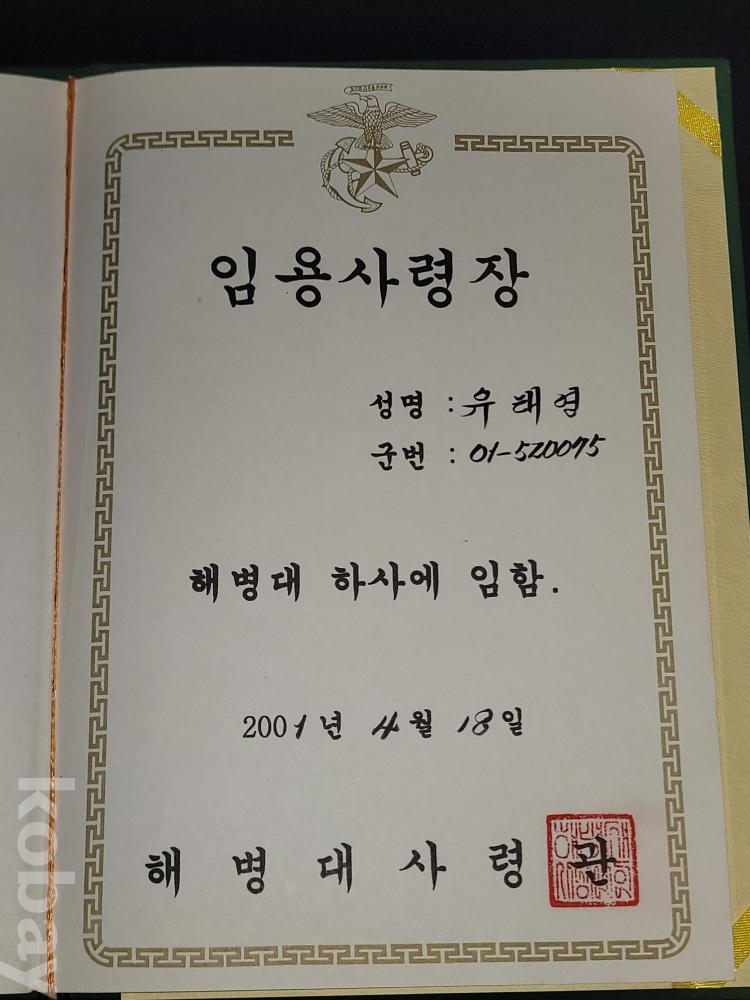 임용사령장
성명 : 유태영
군번 : 01-520075
해병대 하사에 임함.
2001년 4월 18일
해병대사령관
kobay